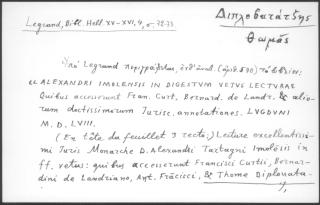 Legrand, Bibl. Hell XV-XVI, 4, σ. 72-73
Διπλοβατάτζης
Θωμάς
Ὑπὸ Legrand περιγράφεται, (ἀριθ. 590) τὸ βιβλίον:
« ALEXANDRI IMOLENSIS IN DIGESTUM VETUS LECTURAE
Quibus accesserunt Fran. Curt. Bernard. de Landr. & alio-
rum doctissimorum Jurisc. annotationes. LVGDVNI
M. D. LVIII.
(En tête du feuillet 3 recto:) Lecture excellentissi-
mi Juris Monarche D. Alexandri Tartagni Imolēsis in
ff. vetus: quibus accesserunt Francisci Curtii, Bernar-
dini de Landriano, Ant. Frācisci, & Thome Diplovata-